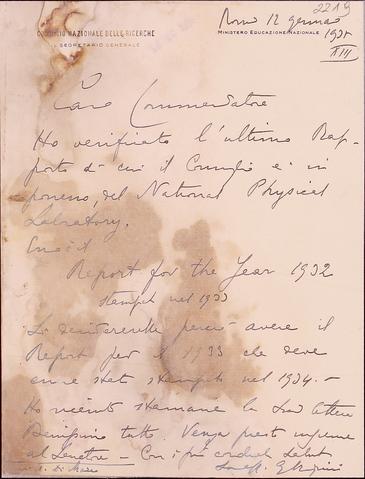 2219
CONSIGLIO NAZIONALE DELLE RICERCHE
IL SEGRETARIO GENERALE
Roma 12 gennaio 1935
MINISTERO EDUCAZIONE NAZIONALE
XIII
Caro Commendatore
Ho verificato l'ultimo Rap-
porto di cui il Consiglio è in
possesso, del National Physical
Laboratory.
Esso è il
Report for the Year 1932
stampato nel 1933
Si desidererebbe perciò avere il
Report per il 1933 che deve
essere stato stampato nel 1934. —
Ho ricevuto stamane la Sua lettera
Benissimo tutto. Venga presto insieme
al Senatore — Con i più cordiali saluti